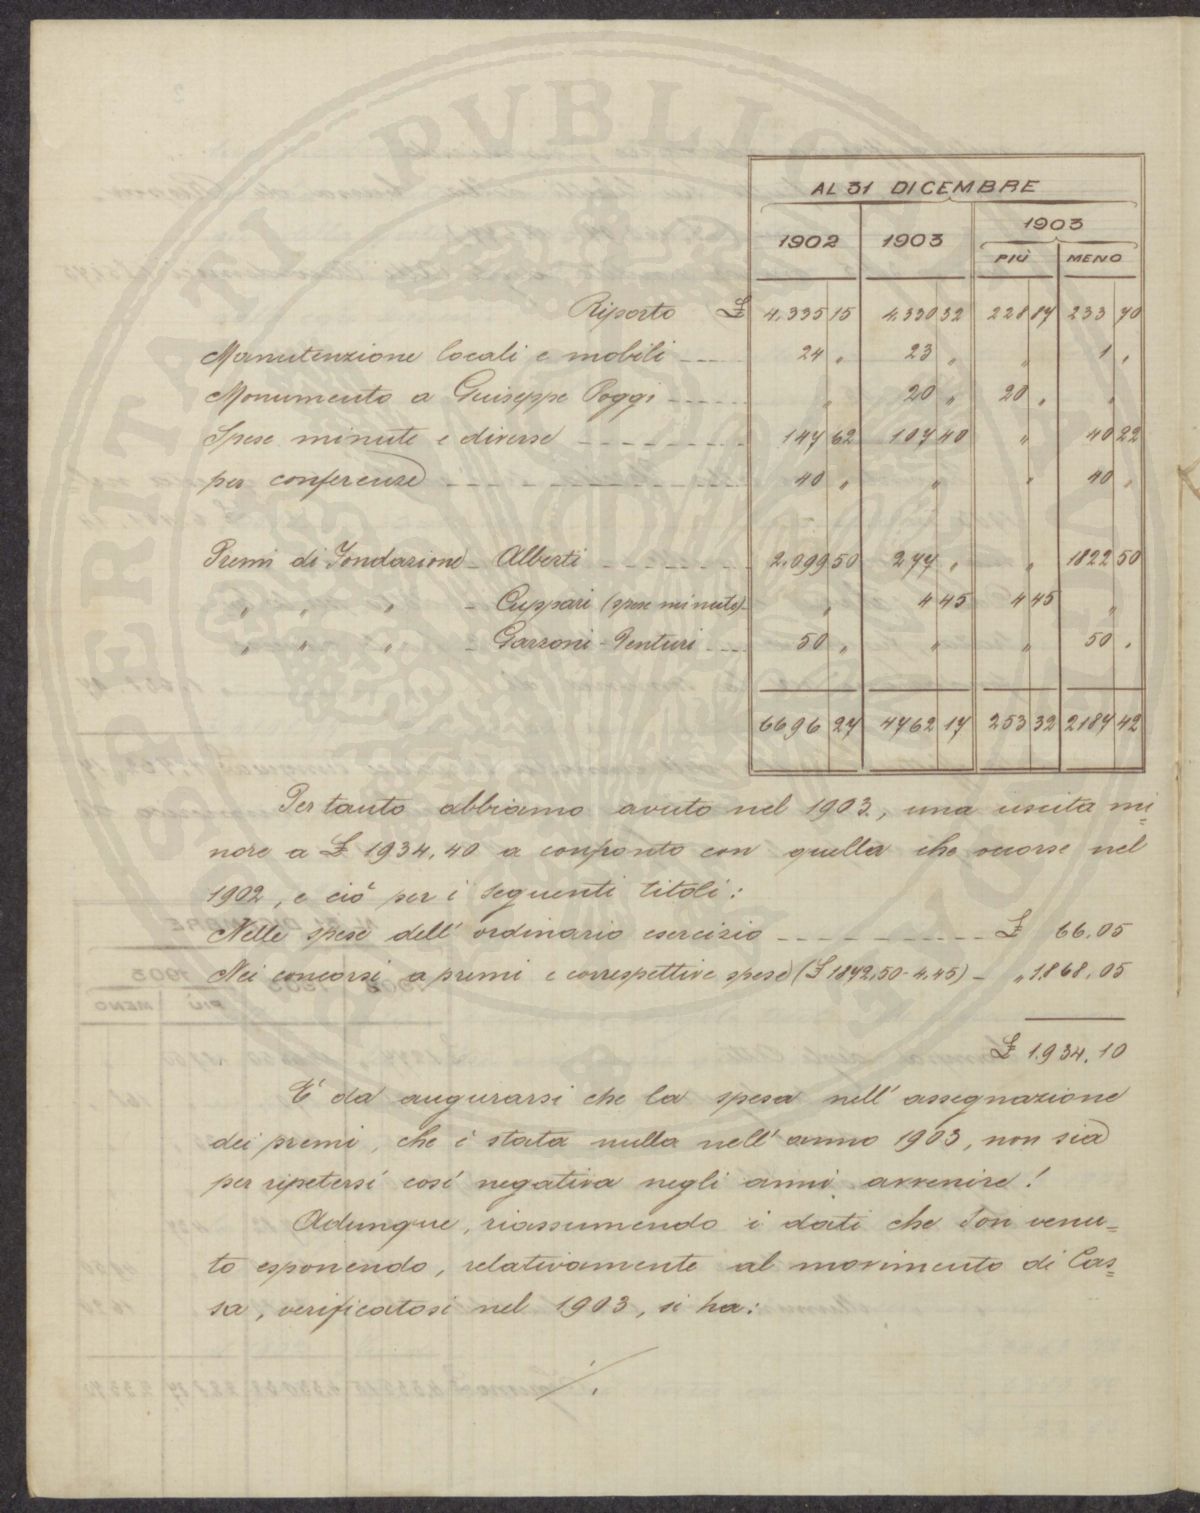 AL 31 DICEMBRE
1902 1903 1903
PIÙ MENO
Riporto £ 4.335 15 4.330 32 228 87 233 70
Manutenzione locali e mobili 24 „ 23 „ „ 1 „
Monumento a Guiseppe Poggi „ 20 „ 20 „ „
Spese minute e diverse 147 62 107 40 „ 40 22
per conferenze 40 „ „ „ 40 „
Premi di Fondazione - Alberti 2.099 50 277 „ „ 1822 50
„ „ „ - Cuppari (spese minute) „ 4 45 4 45 „
„ „ „ - Garzoni-Venturi 50 „ „ „ 50 „
6696 27 4762 17 253 32 2187 42
Per tanto abbiamo avuto nel 1903, una uscita mi=
nore a £ 1934,40 a confronto con quella che occorse nel
1902, e ciò per i seguenti titoli:
Nelle spese dell' ordinario esercizio £ 66.05
Nei concorsi a premi e correspettive spese (£ 1872,50 - 4.45) - „ 1.868.05
£ 1.934.10
E' da augurarsi che la spesa nell' assegnazione
dei premi, che è stata nulla nell' anno 1903, non sia
per ripetersi così negativa negli anni avvenire!
Adunque, riassumendo i dati che son venu=
to esponendo, relativamente al movimento di Cas=
sa, verificatosi nel 1903, si ha:
./.